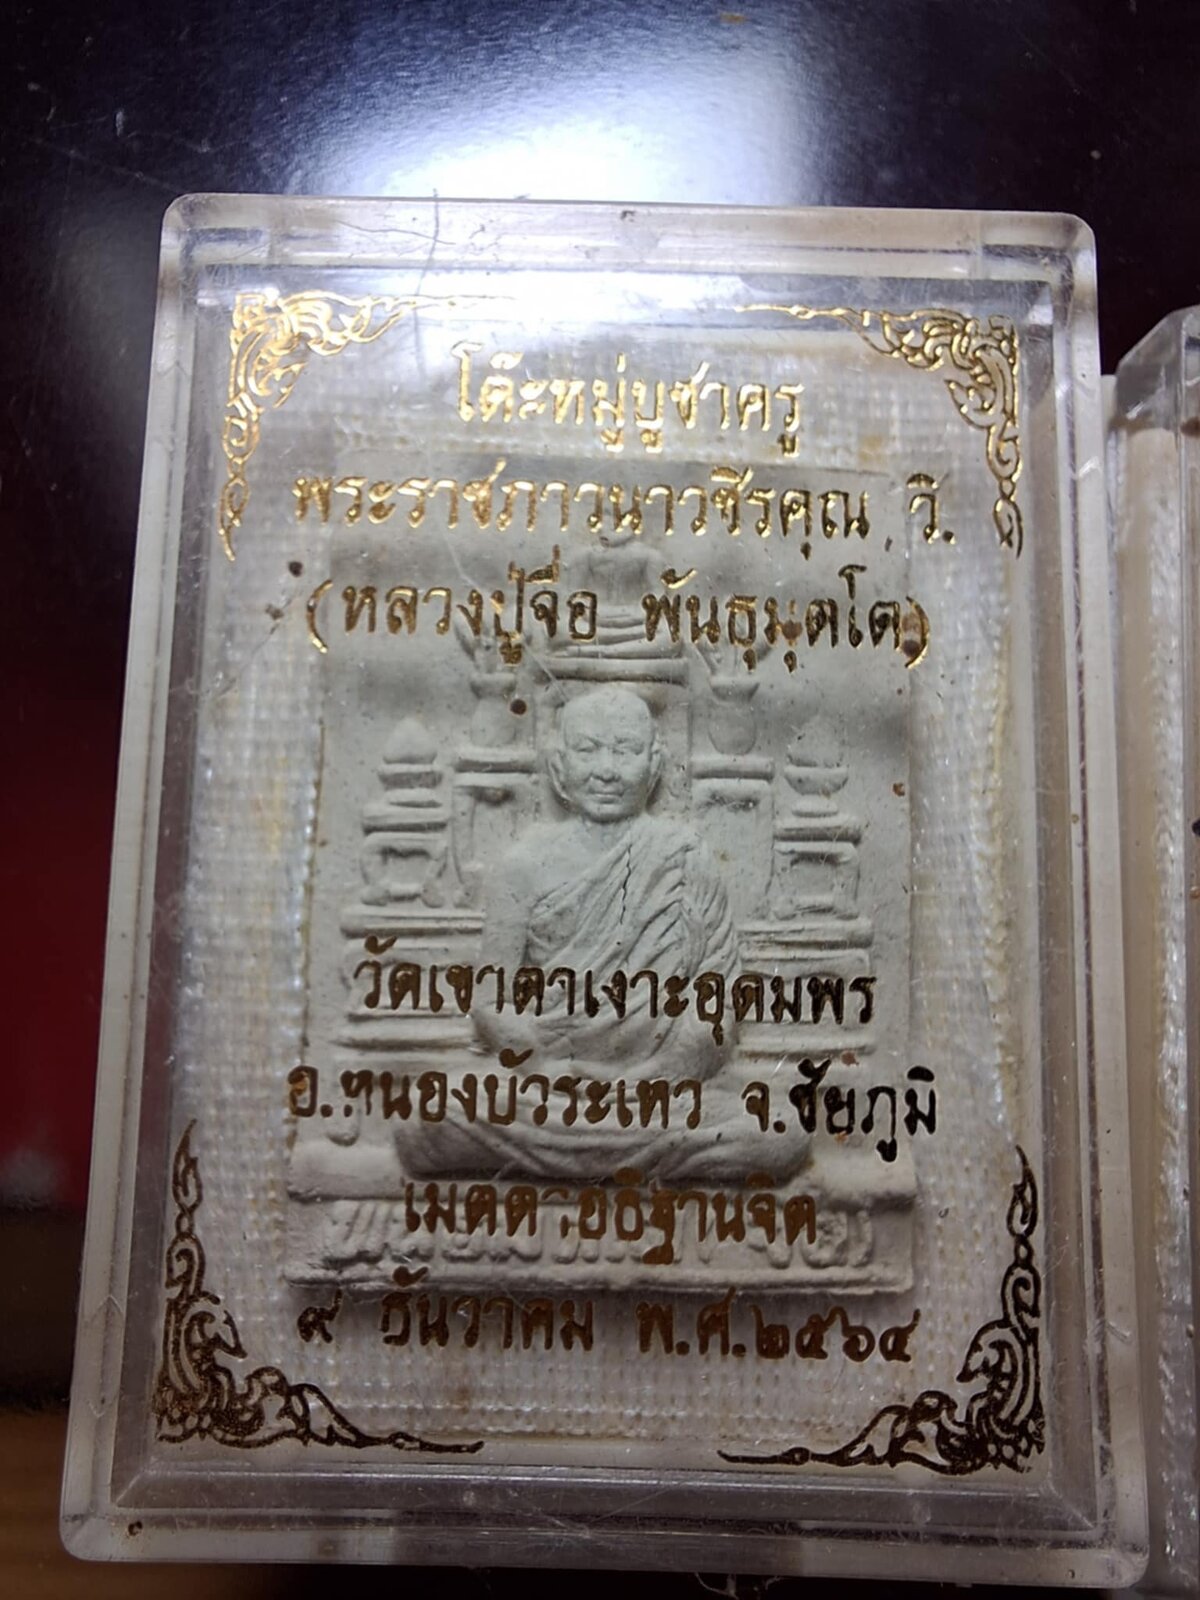 โต๊ะหมู่บูชาครู
พระราชภาวนาวชีรคุณ วิ.
(หลวงปู่จื่อ พันธุมุตโต)
วัดเขาตาเงาะอุดมพร
อ.หนองบัวระเหว จ.ชัยภูมิ
เมตตาอธิฐานจิต
๙ ธันวาคม พ.ศ.๒๕๖๔